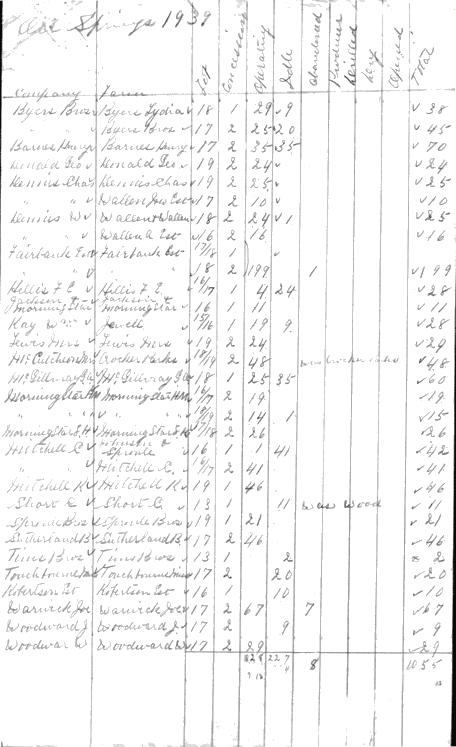 Oil Springs 1939
Company Farm Lot Concession Operating Idle Abandoned Produces Drilled Dry Opened Total
Byers Bros Byers Lydia 18 1 29 9 38
" " Byers Bros 17 2 25 20 45
Barnes Henry Barnes Henry 17 2 35 35 70
Donald Geo Donald Geo. 19 2 24 24
Dennis Chas Dennis Chas 19 2 25 25
" " Wallen Jas Est 17 2 10 10
Dennis W Wallen Wallen 18 2 24 1 25
" " Wallen A Est 16 2 16 16
Fairbank Est Fairbank Est 17/18 1
" " 18 2 199 1 199
Hillis F E Hillis F E 16/17 1 4 24 28
Jackson E Jackson E
Morning Star Morning Star 16 1 11 11
Kay Wm Jewell 15/16 1 19 9 28
Lewis Hers Lewis Hers 19 2 24 24
McCutcheon Crocker Parks 18/19 2 48 was Crocker 48
McGillvray McGillvray 18 1 25 35 60
Morning Star HM Morning Star HM 16/17 2 19 19
" " " " 18/19 2 14 1 15
Morning Star S.H Morning Star S.H 17/18 2 26 26
Mitchell C Johnson & Sprowle 16 1 1 41 42
" " Mitchell C. 16/17 2 41 41
Mitchell R Mitchell R 19 1 46 46
Short C Short C. 13 1 11 was Wood 11
Sproule Bros Sproule Bros 19 1 21 21
Sutherland B Sutherland B 17 2 46 46
Tims Bros Tims Bros 13 1 2 x 2
Touchbourne Touchbourne 17 2 20 20
Robertson Est Robertson Est 16 1 10 10
Warwick Joe Warwick Joe 17 2 67 7 67
Woodward J. Woodward J. 17 2 9 9
Woodwar W Woodward W 17 2 29 29
828 227 8 1055